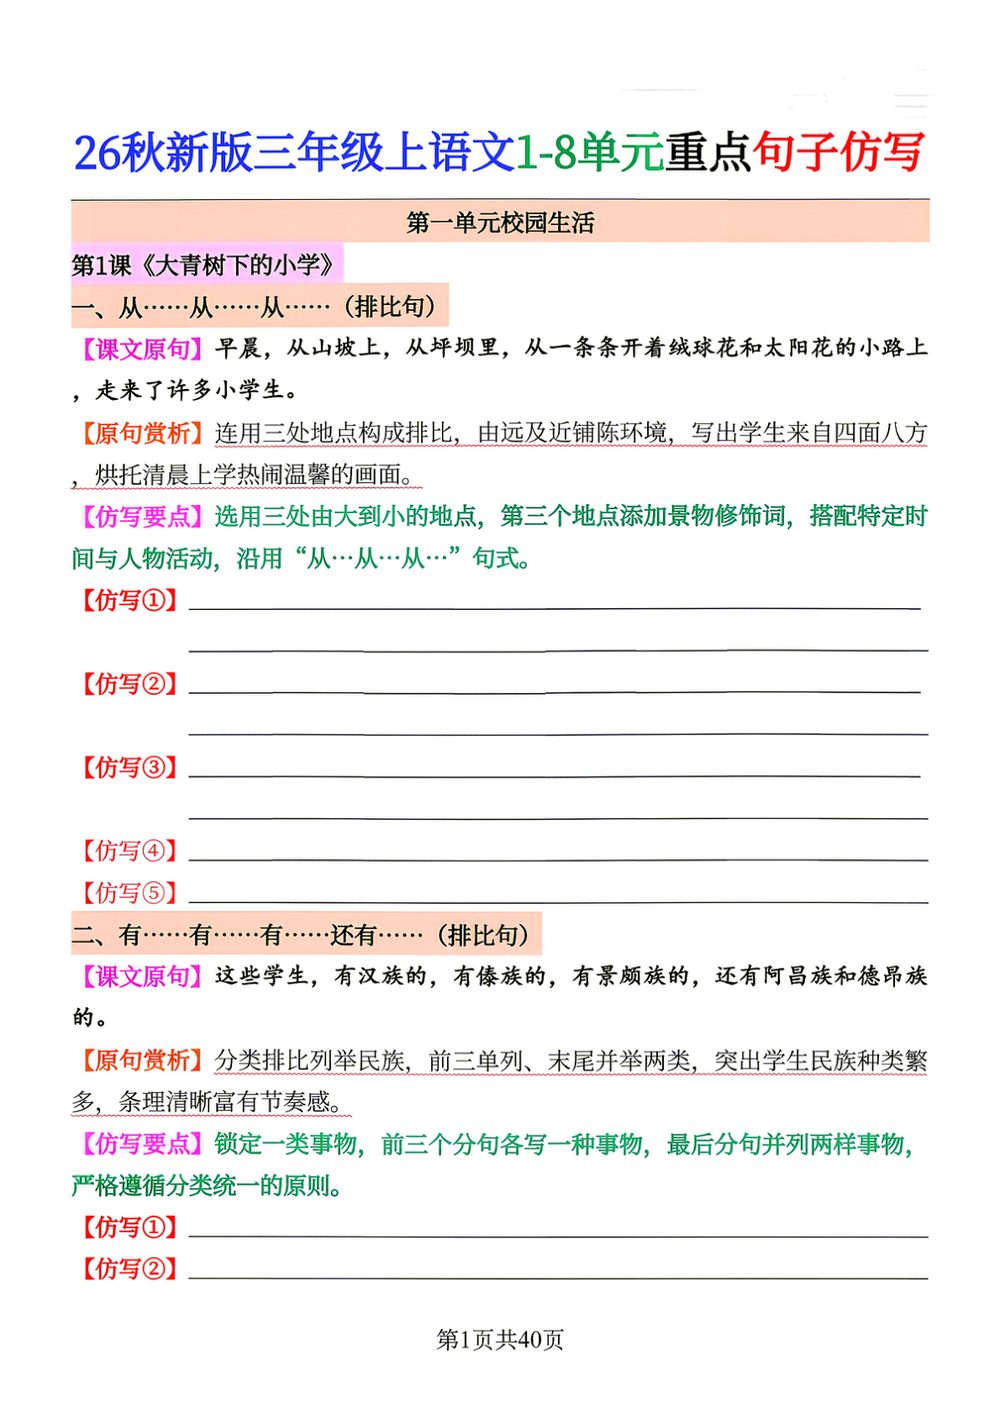 26秋新版三年级上语文1-8单元重点句子仿写
第一单元校园生活
第1课《大青树下的小学》
一、从……从……从……（排比句）
【课文原句】早晨，从山坡上，从坪坝里，从一条条开着绒球花和太阳花的小路上
，走来了许多小学生。
【原句赏析】连用三处地点构成排比，由远及近铺陈环境，写出学生来自四面八方
，烘托清晨上学热闹温馨的画面。
【仿写要点】选用三处由大到小的地点，第三个地点添加景物修饰词，搭配特定时
间与人物活动，沿用“从…从…从…”句式。
【仿写①】
【仿写②】
【仿写③】
【仿写④】
【仿写⑤】
二、有……有……有……还有……（排比句）
【课文原句】这些学生，有汉族的，有傣族的，有景颇族的，还有阿昌族和德昂族
的。
【原句赏析】分类排比列举民族，前三单列、末尾并举两类，突出学生民族种类繁
多，条理清晰富有节奏感。
【仿写要点】锁定一类事物，前三个分句各写一种事物，最后分句并列两样事物，
严格遵循分类统一的原则。
【仿写①】
【仿写②】
第1页共40页